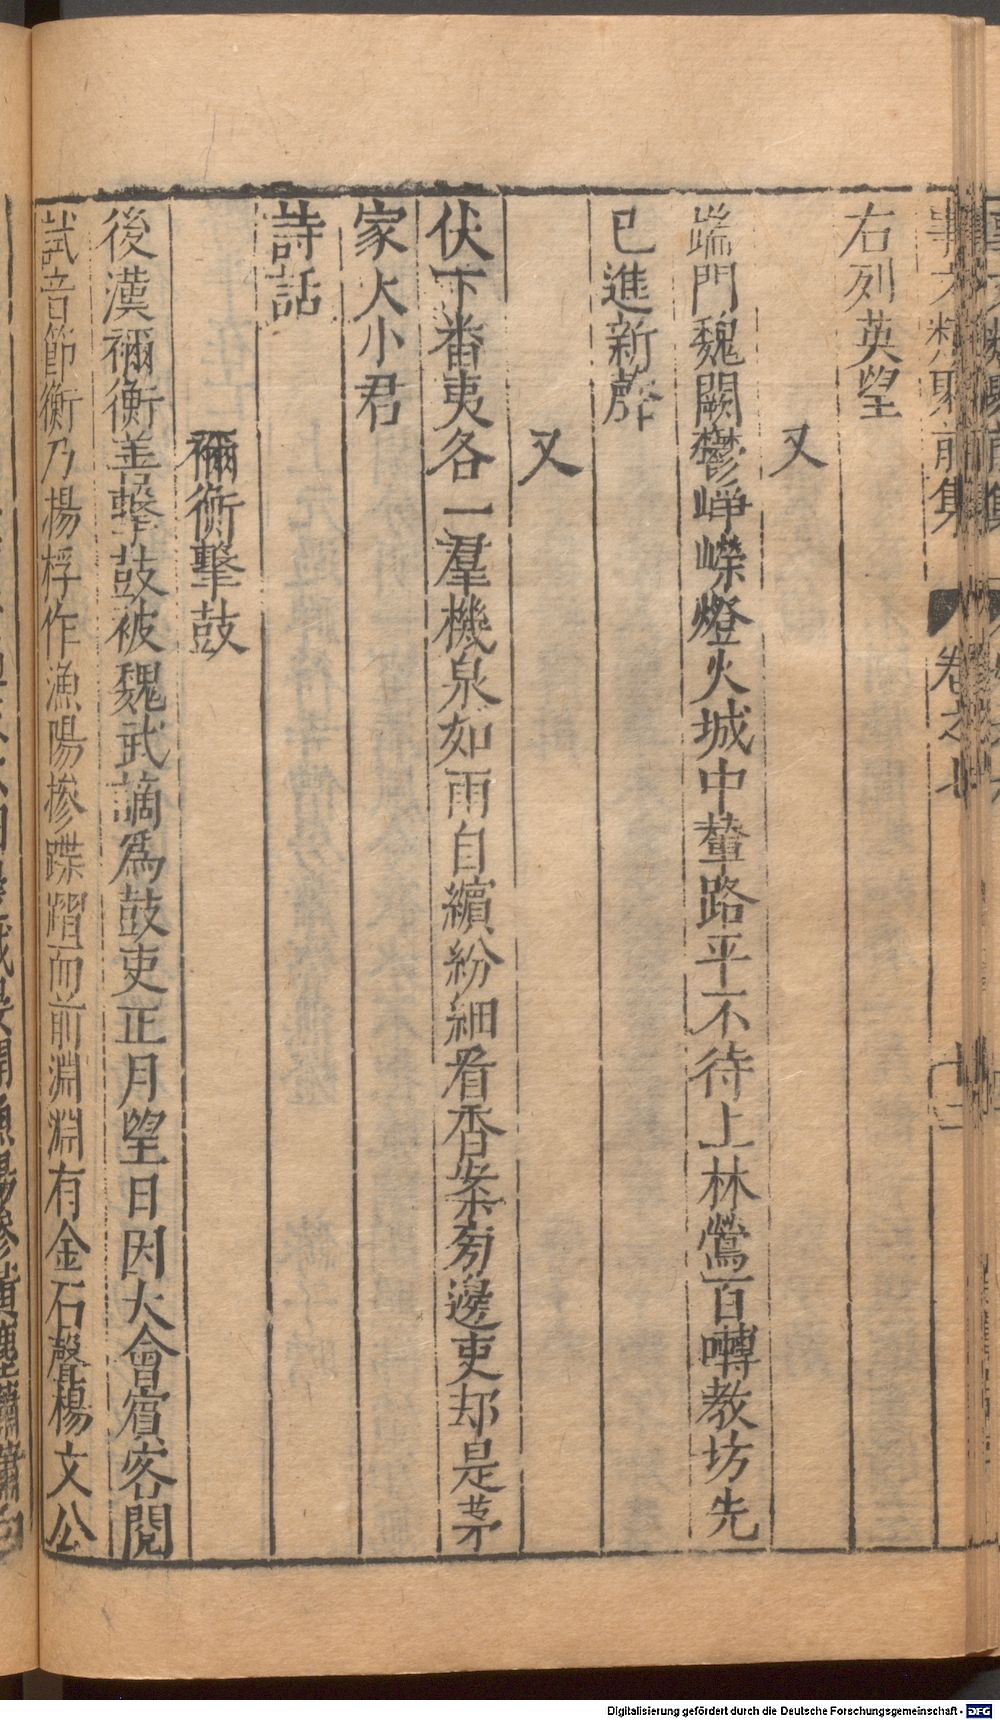 事文類聚前集 卷之七 十二
右列英望
又
端門魏闕鬱崢嶸燈火城中輦路平不待上林鶯百囀教坊先
已進新聲
又
伏下番夷各一羣機泉如雨自繽紛細看香案旁邊吏却是茅
家大小君
詩話
禰衡擊鼓
後漢禰衡善擊鼓被魏武謫爲鼓吏正月望日因大會賓客閱
試音節衡乃揚桴作漁陽摻蹀䠧而前淵淵有金石聲楊文公
Digitalisierung gefördert durch die Deutsche Forschungsgemeinschaft - DFG